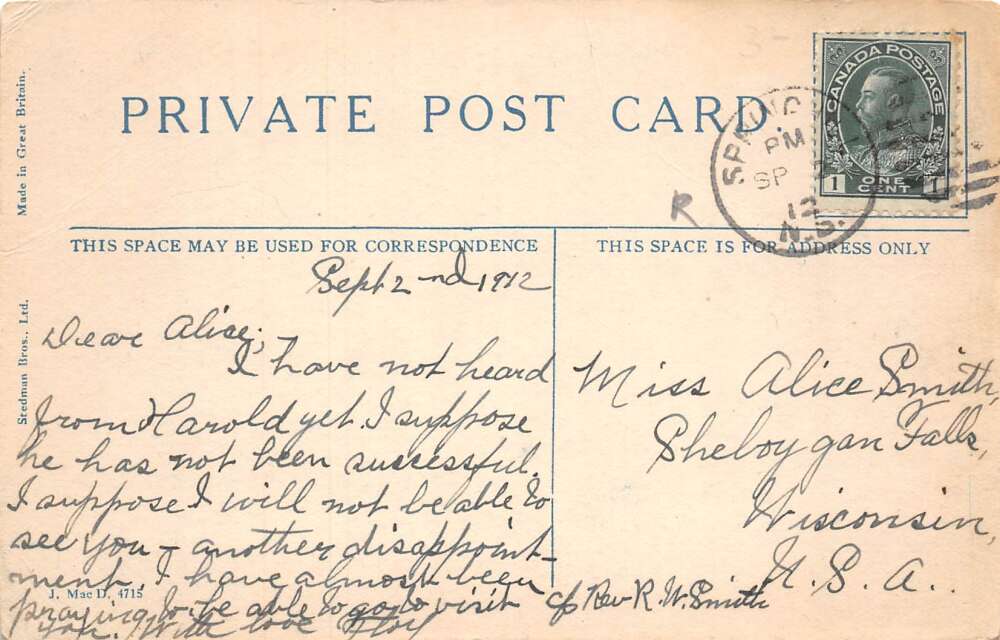 PRIVATE POST CARD.
CANADA POSTAGE
1 ONE CENT 1
SPRING
PM
SP
12
N.S.
R
THIS SPACE MAY BE USED FOR CORRESPONDENCE
THIS SPACE IS FOR ADDRESS ONLY
Made in Great Britain.
Stedman Bros., Ltd.
Sept 2nd 1912
Dear Alice;
I have not heard
from Harold yet. I suppose
he has not been successful.
I suppose I will not be able to
see you - another disappoint-
ment. I have almost been
praying to be able to go to visit
you. With love
J. Mac D. 4715
Miss Alice Smith,
Sheboygan Falls,
Wisconsin,
U. S. A.
c/o Rev R. W. Smith